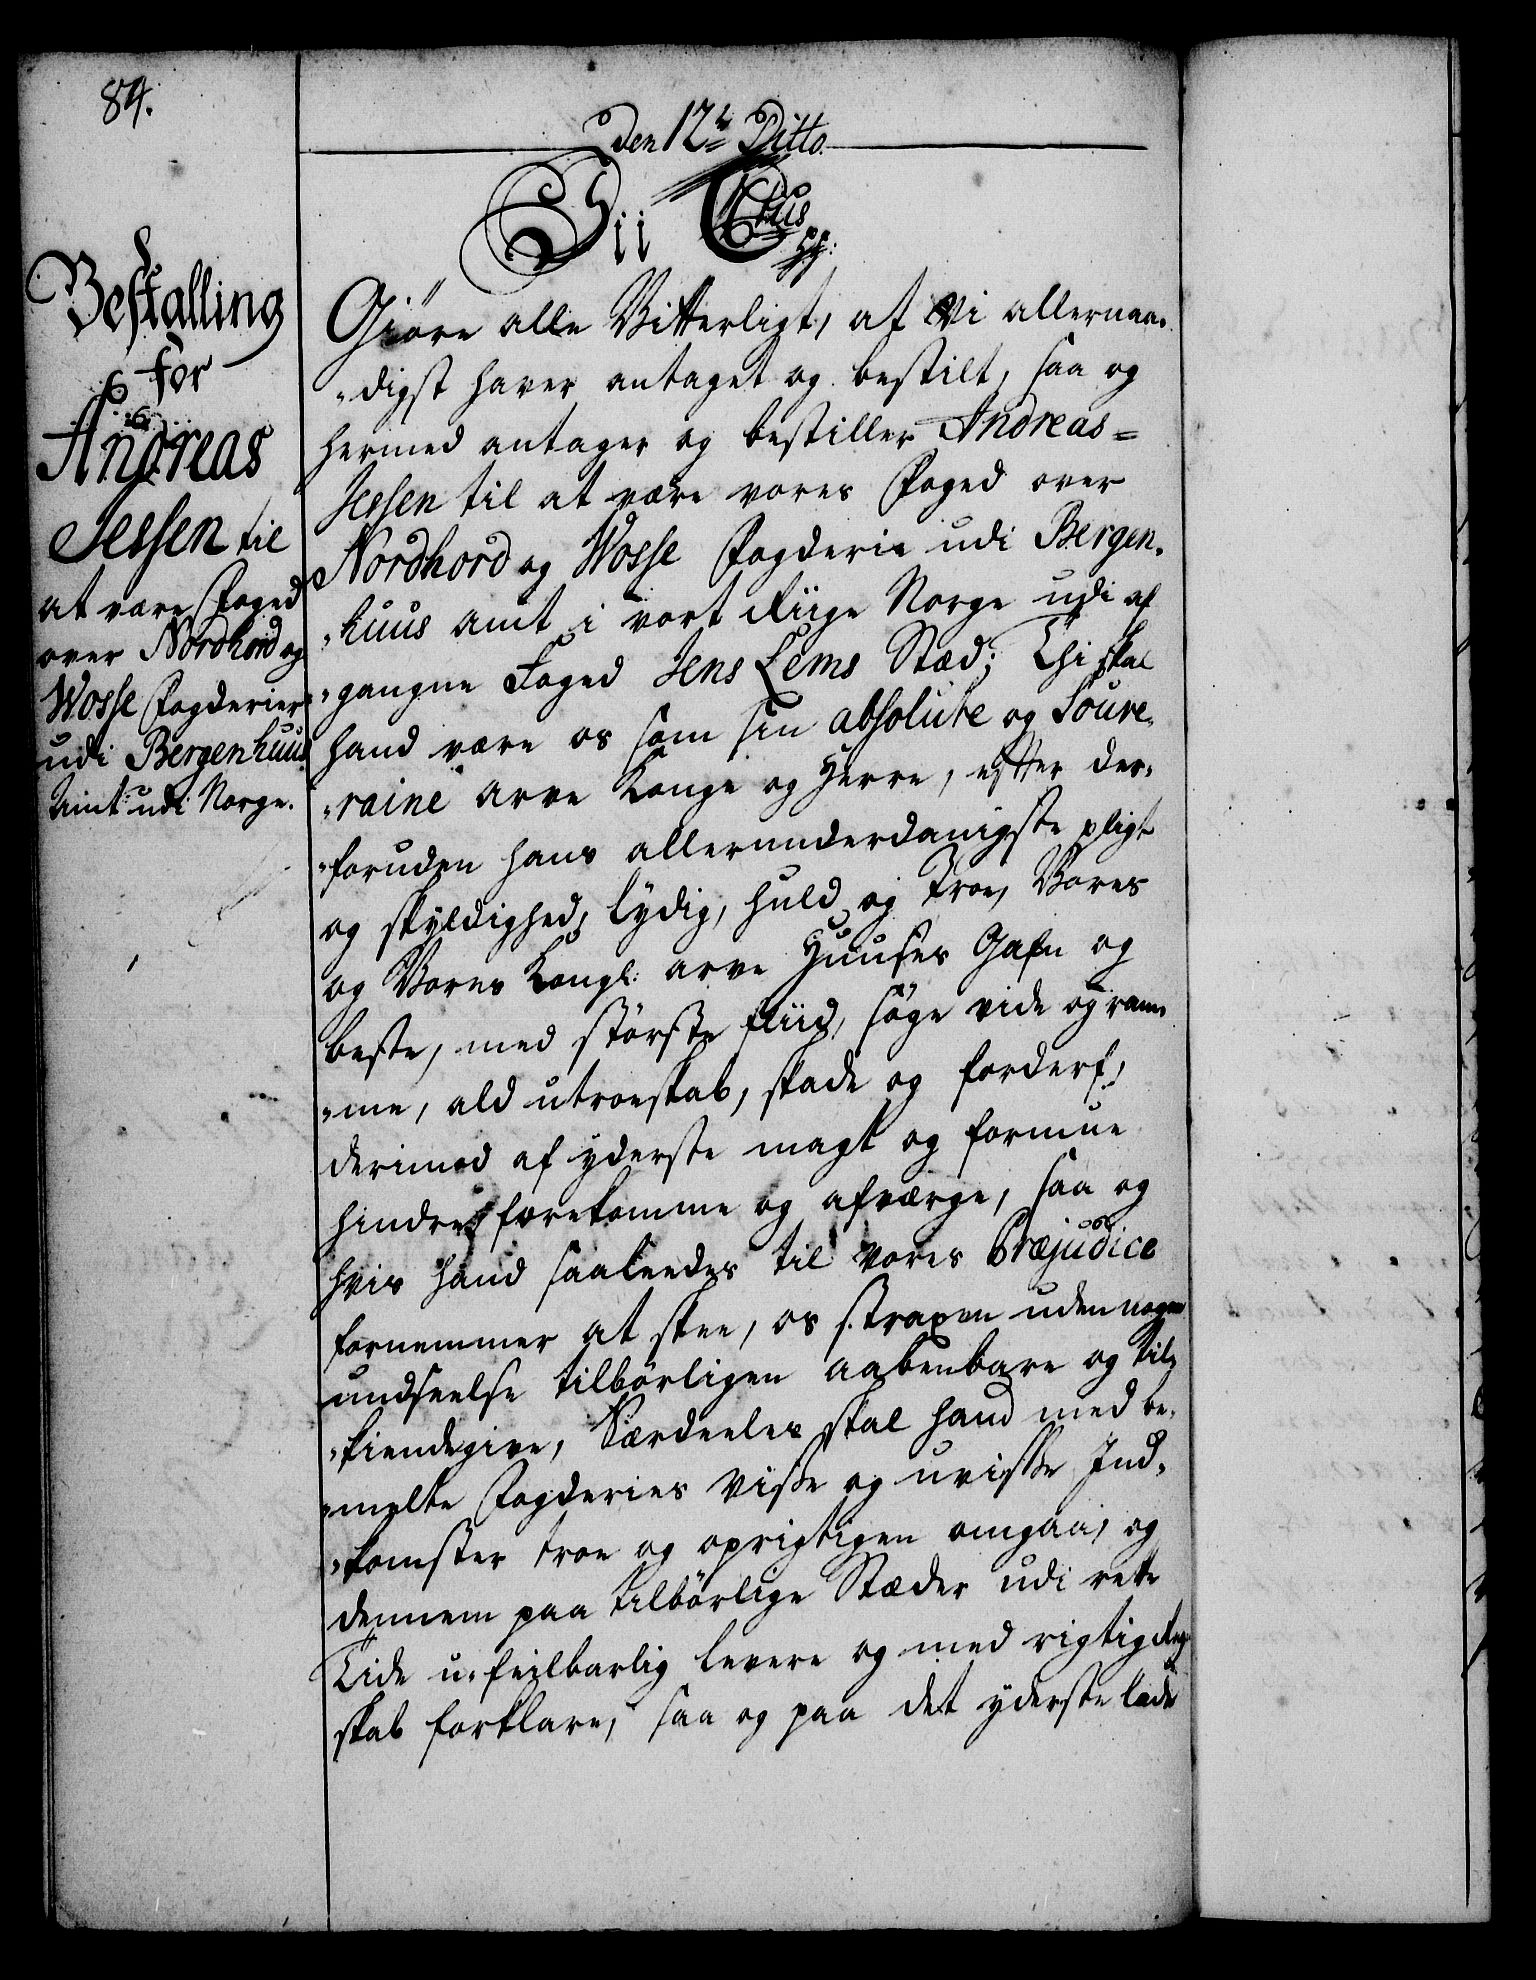 84.
Den 12te Ditto
Bestalling
for
Andreas
Jessen til
at være Foged
over Nordhord og
Wosse Fogderier
udi Bergenhuus
Amt udi Norge.
Vii Ctus
pp:
Giøre alle Vitterligt, at Vi allernaa„
„digst haver antaget og bestilt, saa og
hermed antager og bestiller Andreas=
Jessen til at være vores Foged over
Nordhord og Wosse Fogderie udi Bergen„
„huus amt i vort Riige Norge udi af
„gangne Foged Jens Lems Stæd; Thi skal
hand være os som sin absolute og Souve„
„raine arve Konge og Herre, efter der„
„foruden hans allerunderdanigste pligt
og skyldighed, lydig, huld og Troe, Vores
og Vores Kongl: arve Huuses Gafn og
beste, med største Fliid, søge vide og ram„
„me, ald utroeskab, skade og forderf,
derimod af yderste magt og formue
hindre forekomme og afværge, saa og
hvis hand saaleedes til vores Præjudice
fornemmer at skee, os straxen uden nogen
undseelse tilbørligen aabenbare og til„
„kiendegive, Særdeeles skal hand med be„
„melte Fogderies visse og uvisse Ind„
„komster troe og oprigtigen omgaa, og
dennem paa tilbørlige Stæder udi rette
Tide u-feilbarlig levere og med rigtig Reg„
skab forklare, saa og paa det yderste lade